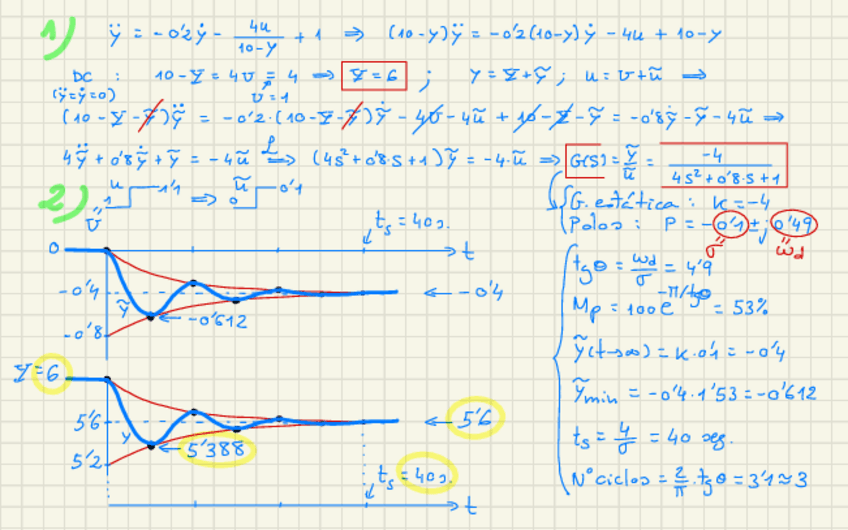 1) ÿ = -0'2ẏ - 4u/(10-y) + 1 ⇒ (10-y)ÿ = -0'2(10-y)ẏ - 4u + 10-y
DC : 10-Y = 4U = 4 ⇒ Y=6 ; y = Y+ỹ ; u = U+ũ ⇒
(ÿ=ẏ=0) U=1
(10-Y-ỹ)ỹ̈ = -0'2·(10-Y-ỹ)ỹ̇ - 4U - 4ũ + 10-Y-ỹ = -0'8ỹ̇ - ỹ - 4ũ ⇒
4ỹ̈ + 0'8ỹ̇ + ỹ = -4ũ ⇒ℒ (4s²+0'8·s+1)ỹ = -4·ũ ⇒ G(s) = ỹ/ũ = -4/(4s²+0'8·s+1)
2) u 1 1'1 ⇒ ũ 0 0'1
U
G. estática : K = -4
Polos : P = -0'1 ± j 0'49
σ ωd
ts = 40s.
0 t
-0'4 ← -0'4
ỹ
← -0'612
-0'8
Y=6
5'6 ← 5'6
y
← 5'388
5'2
ts = 40s.
t
tgθ = ωd/σ = 4'9
Mp = 100e^(-π/tgθ) = 53%
ỹ(t→∞) = K·0'1 = -0'4
ỹmin = -0'4·1'53 = -0'612
ts = 4/σ = 40 seg.
Nº ciclos = 2/π · tgθ = 3'1 ≈ 3